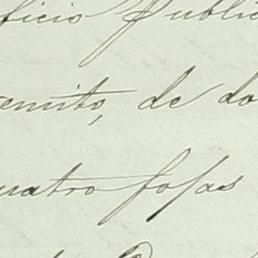 ficio Publi
emito, de do
uatro fosas